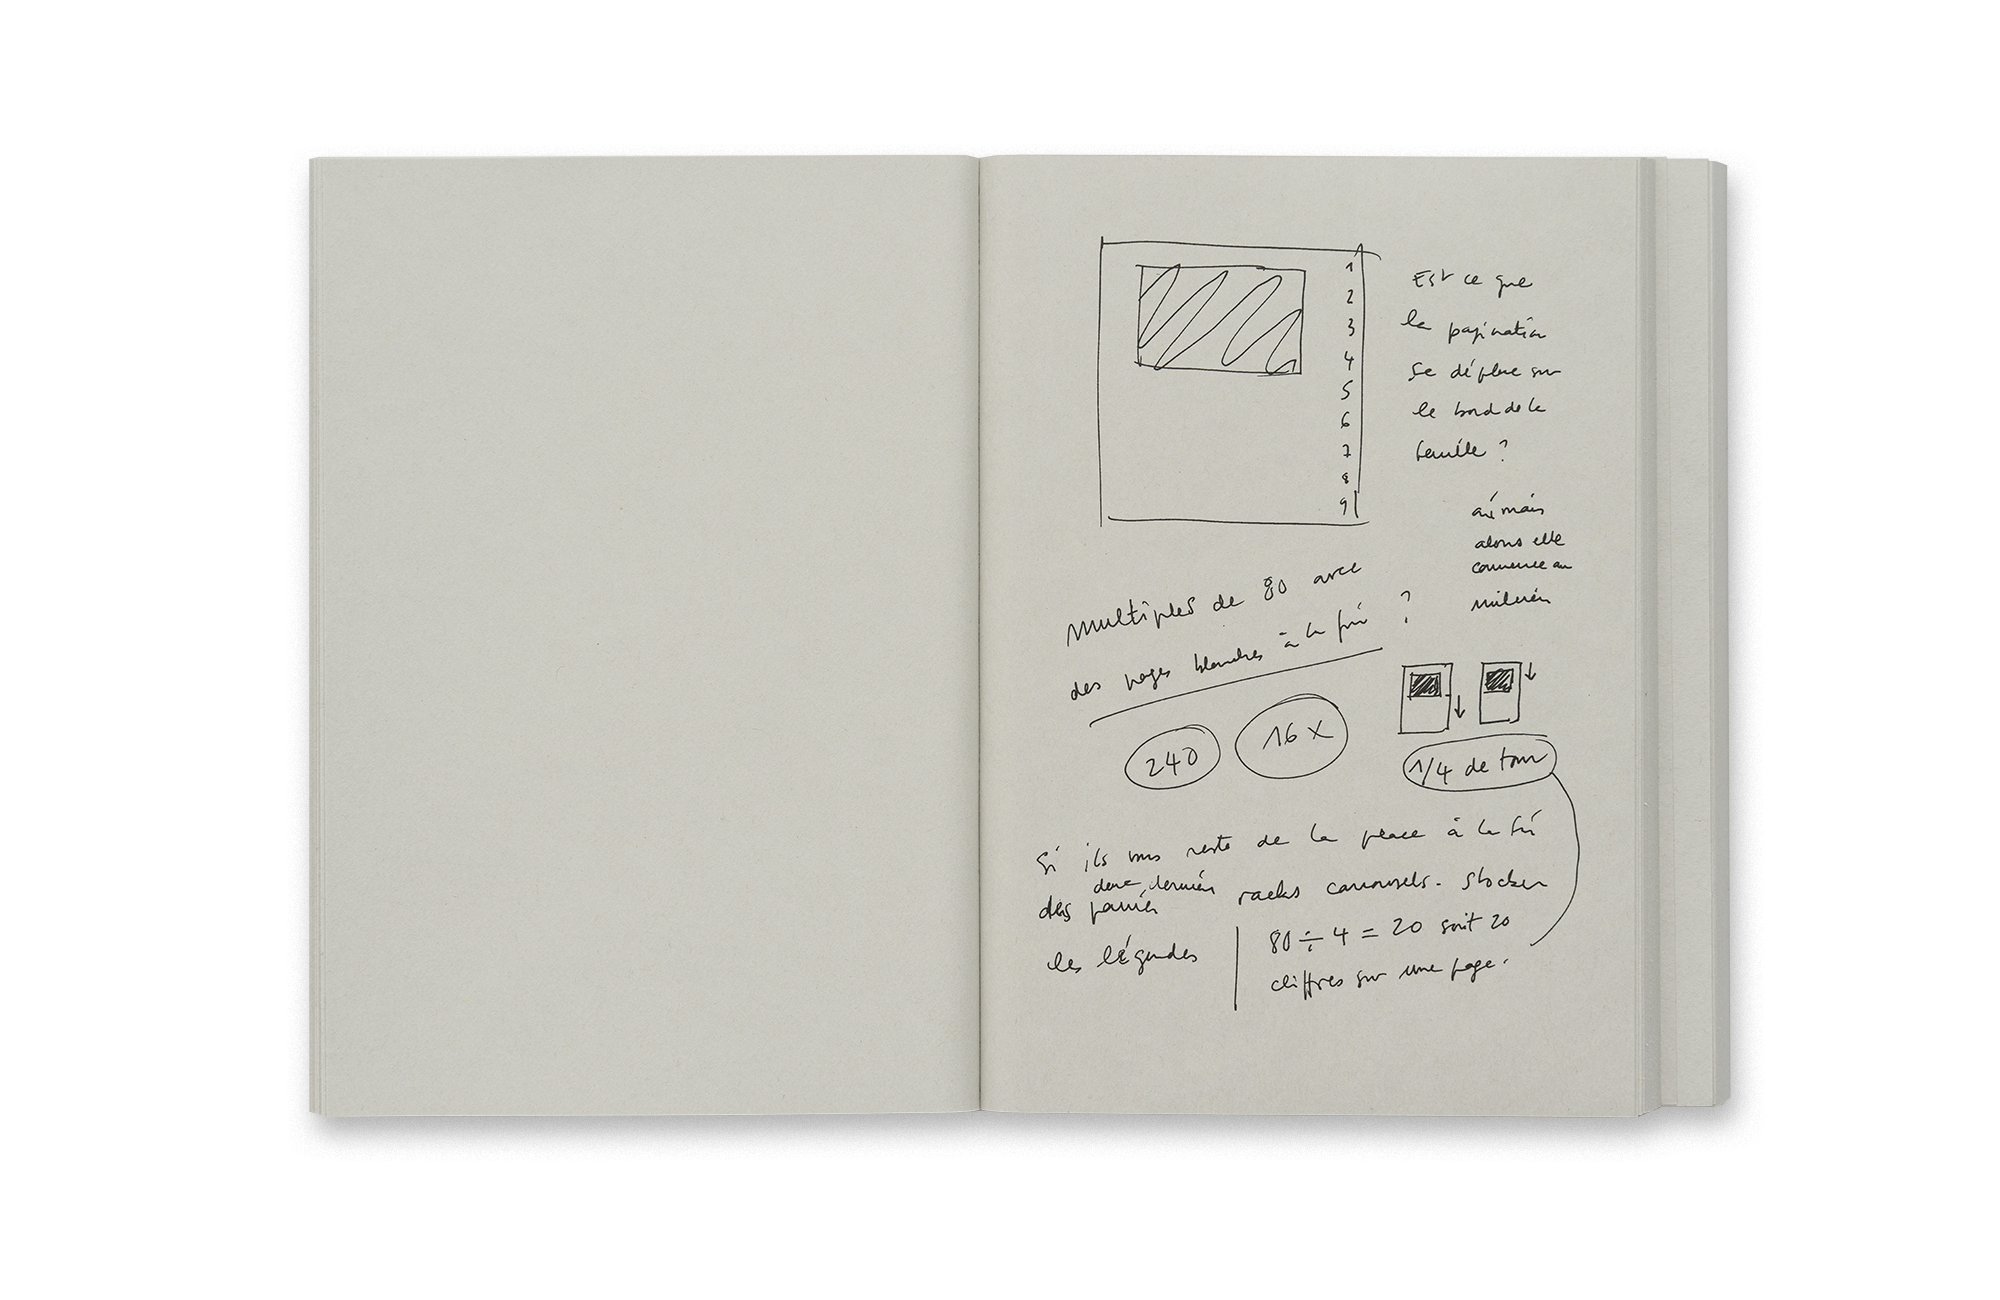 1
2
3
4
5
6
7
8
9
Est ce que
la pagination
se déplace sur
le bord de la
feuille ?
mais
alors elle
commence au
milieu
multiples de 80 avec
des pages blanches à la fin ?
240
16 x
1/4 de tour
Si ils vous reste de la place à la fin
deux dernier
des panier racks carrousels. Stocker
les légendes
80 ÷ 4 = 20 soit 20
chiffres sur une page.